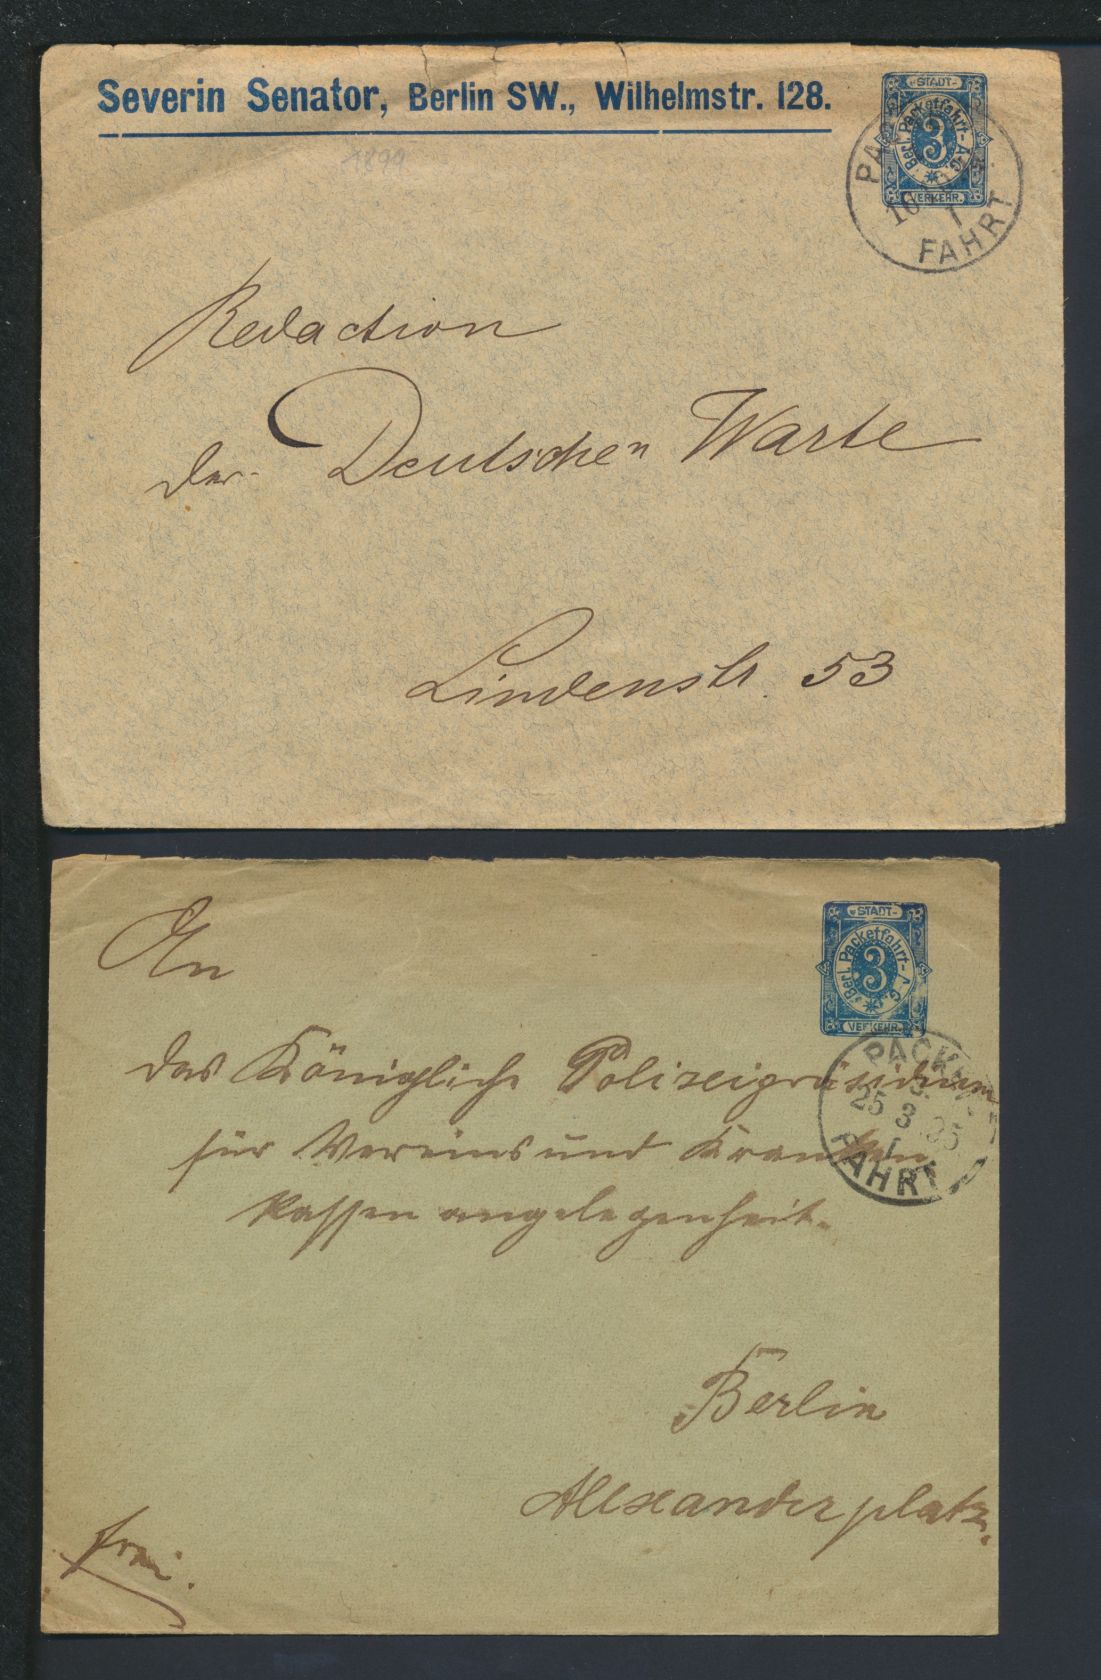 Severin Senator, Berlin SW., Wilhelmstr. 128.
STADT-
Berl. Packetfahrt-A.G.
3
VERKEHR.
FAHRT
1
1899
Redaction
der Deutschen Warte
Lindenstr. 53
STADT-
Berl. Packetfahrt-A.G.
3
VERKEHR.
PACK
25 3 95
1
FAHRT
An
das Königliche Polizeipräsidium
für Vereins und Kranken
kassen angelegenheit.
Berlin
Alexanderplatz.
frei.